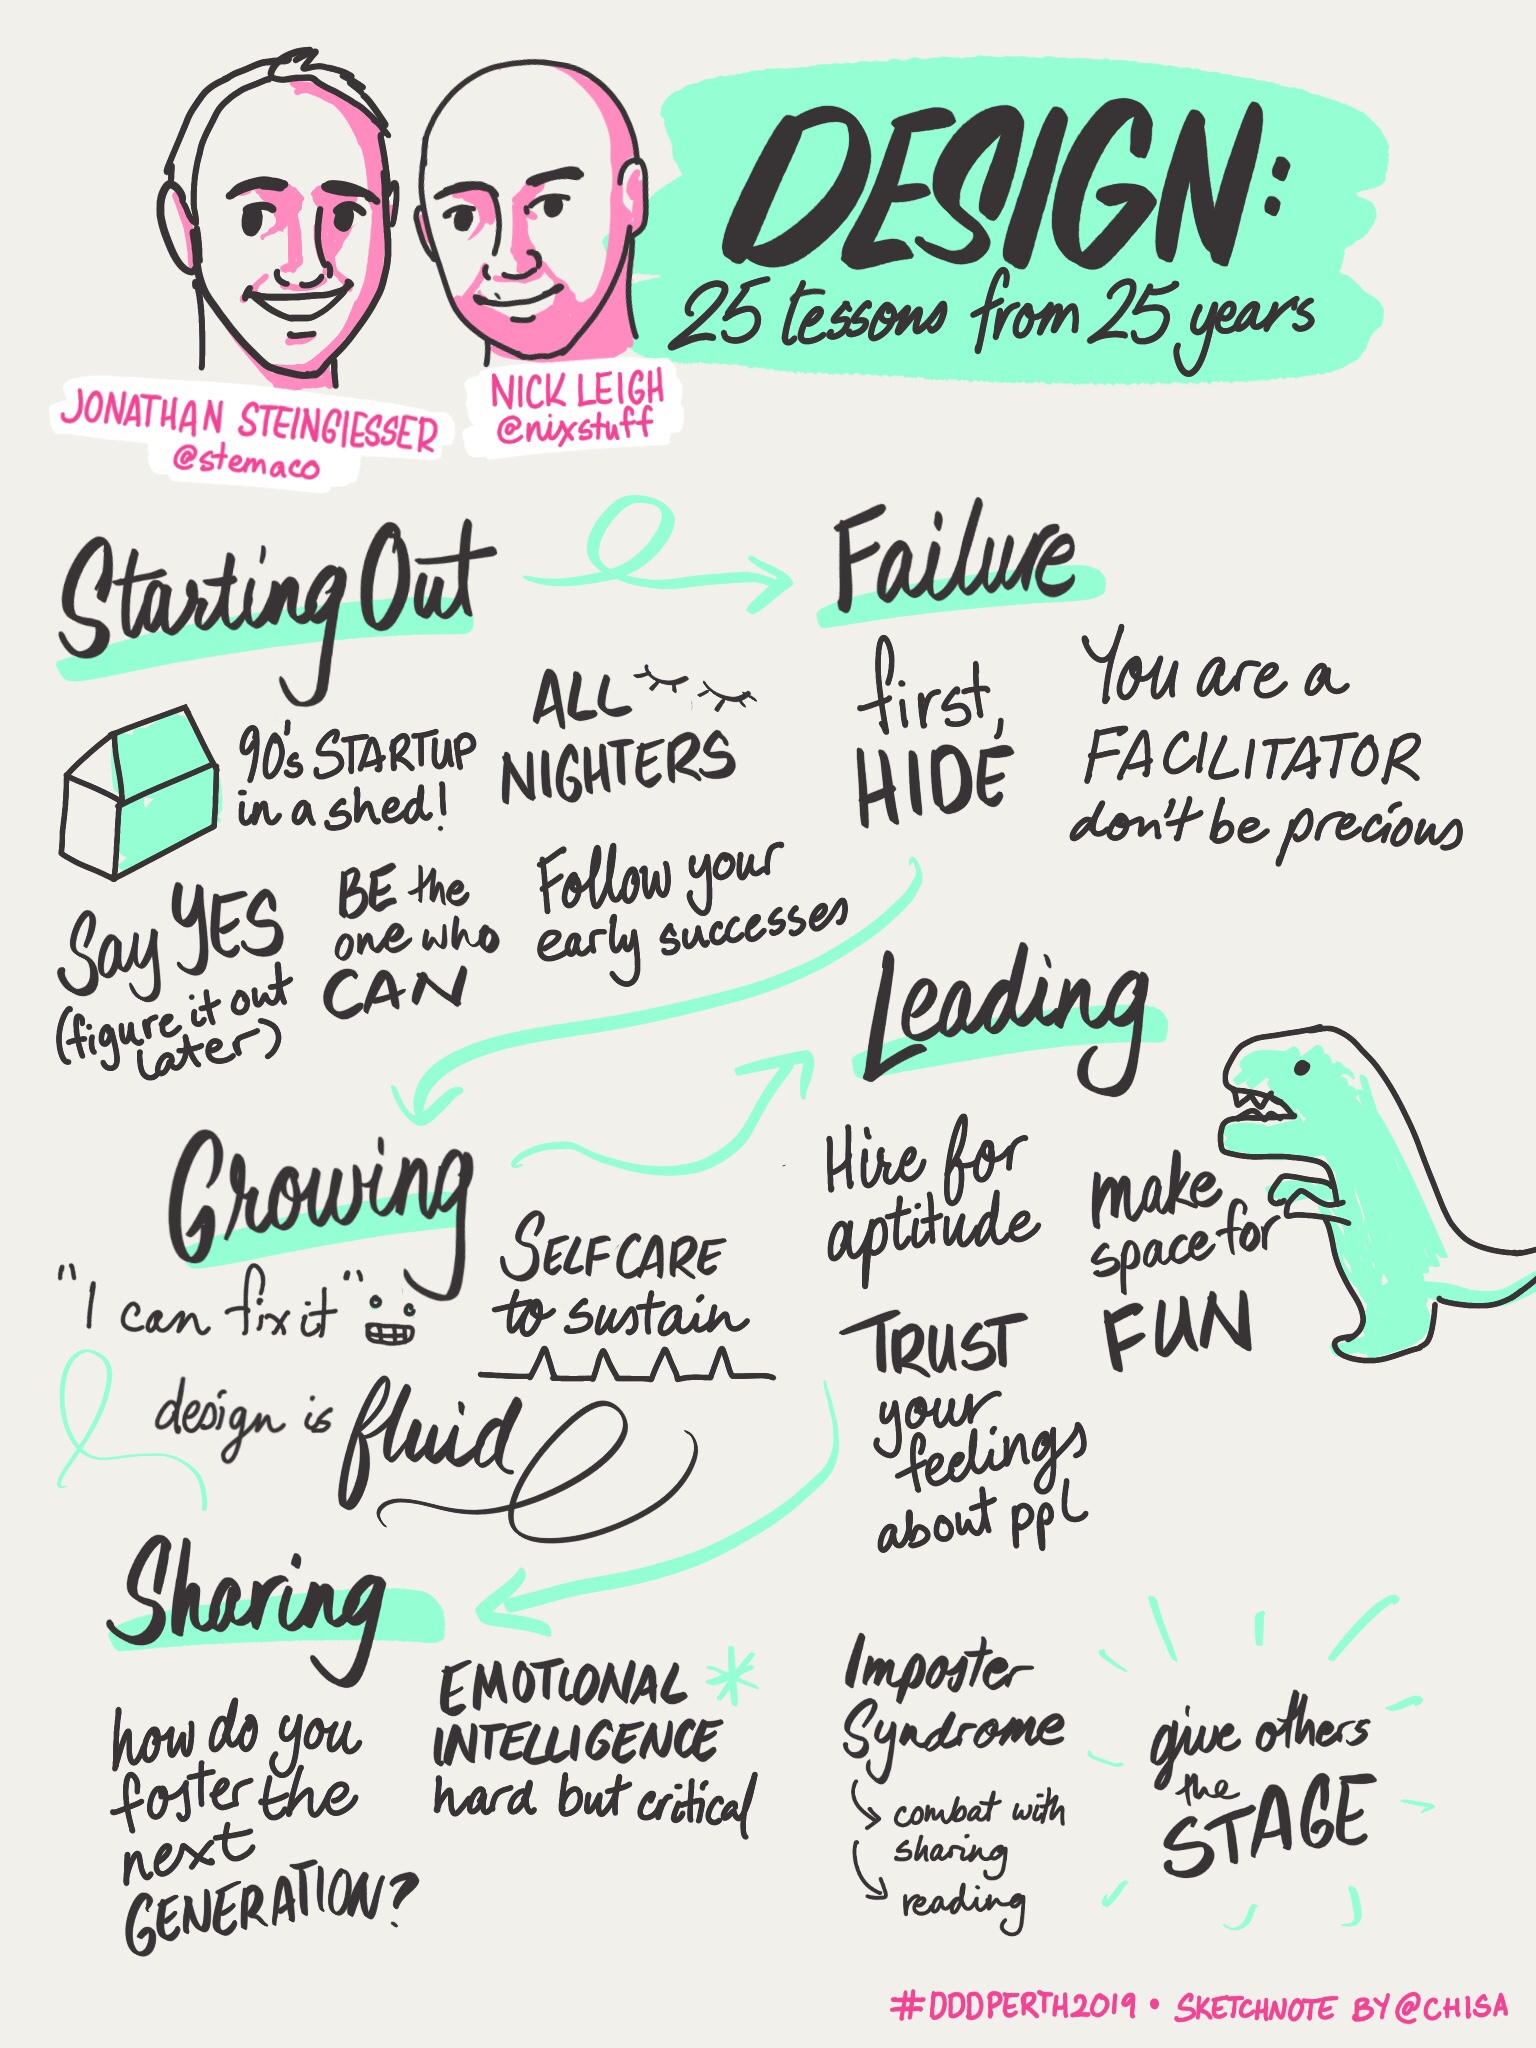 DESIGN:
25 lessons from 25 years
JONATHAN STEINGIESSER
@stemaco
NICK LEIGH
@nixstuff
Starting Out
90's STARTUP
in a shed!
ALL
NIGHTERS
Say YES
(figure it out
later)
BE the
one who
CAN
Follow your
early successes
Failure
first,
HIDE
You are a
FACILITATOR
don't be precious
Growing
"I can fix it"
SELF CARE
to sustain
design is fluid
Leading
Hire for
aptitude
make
space for
FUN
TRUST
your
feelings
about ppl
Sharing
how do you
foster the
next
GENERATION?
EMOTIONAL
INTELLIGENCE
hard but critical
Imposter
Syndrome
combat with
sharing
reading
give others
the
STAGE
#DDDPERTH2019 • SKETCHNOTE BY @CHISA